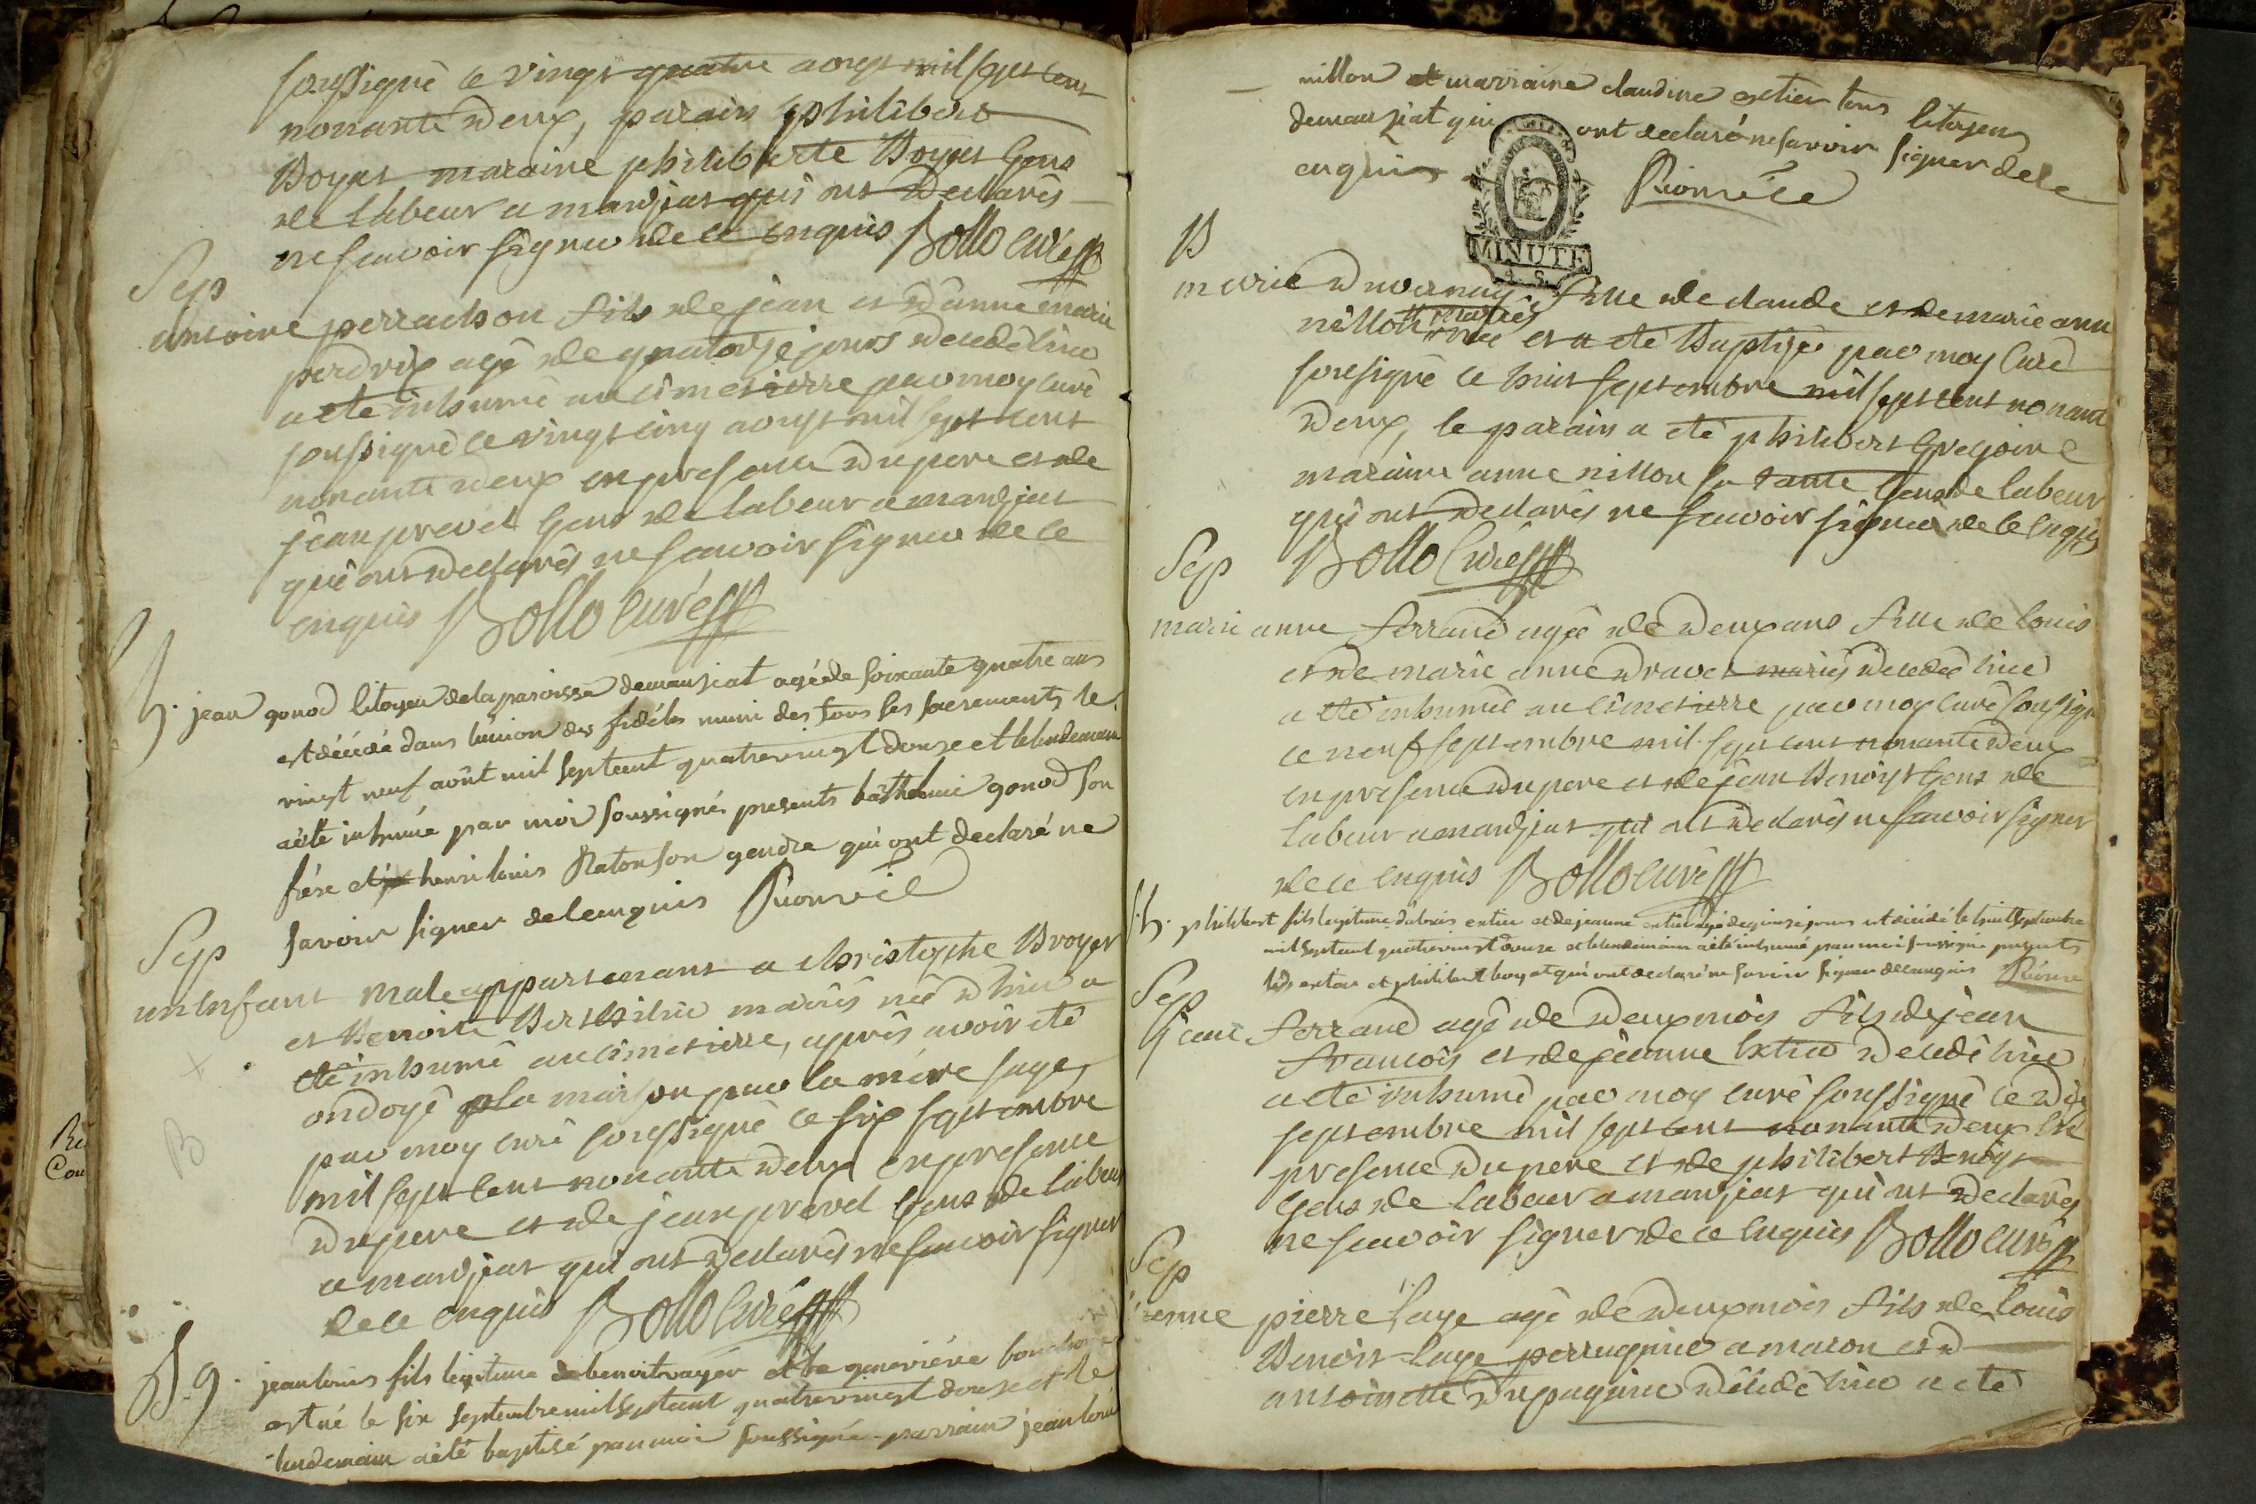 soussigné le vingt quatre aoust mil sept cent
nonante deux, parain philibert
Boyat maraine philiberte Boyat gens
de labeur a manzjat qui ont declarés
ne scavoir signer de ce enquis Bollo curé
Sep
antoine perrachon fils de jean et d'anne marie
perdrix agé de quatorze jours decedé hier
a eté inhumé au cimetierre par moy curé
soussigné le vingt cinq aoust mil sept cent
nonante deux en presence du pere et de
jean prevel gens de labeur a manzjat
qui ont declarés ne scavoir signer de ce
enquis Bollo curé
S. jean gonod citoyen de la paroisse demansiat agé de soixante quatre ans
est décédé dans l'union des fidéles muni des tous ses sacrements le
vingt neuf août mil septcent quatrevingt douse et le lendemain
aété inhumé par moi soussigné presents gonod son
frére et henri louis Raton son gendre qui ont declaré ne
savoir signer de ce enquis
Sep
un enfant male appartenant a christophe Broyer
et Benoite Berthilier mariés né d'hier a
eté inhumé au cimetierre, aprés avoir eté
ondoyé a la maison par la mére sage,
par moy curé soussigné le six septembre
mil sept cent nonante deux en presence
du pere et de jean prevel gens de labeur
a manzjat qui ont declarés ne scavoir signer
de ce enquis Bollo curé
B. 9. jean louis fils legitime de benoit et de geneviéve
est né le six septembre mil septcent quatrevingt douse et le
lendemain aété baptisé par moi soussigné parrain jean louis
nillon et marraine claudine extier tous citoyens
demansiat qui ont declaré ne savoir signer de ce
enquis
MINUTE
B
marie duvernay fille de claude et de marie anne
nillon mariés née et a eté Baptizée par moy curé
soussigné le huit septembre mil sept cent nonante
deux, le parain a eté philibert gregoire
maraine anne nillon sa tante gens de labeur
qui ont declarés ne scavoir signer de ce enquis
Sep Bollo Curé
marie anne ferrand agée de deux ans fille de louis
et de marie anne mariés decedée hier
a eté inhumée au cimetierre par moy curé soussigné
ce neuf septembre mil sept cent nonante deux
en presence du pere et de jean Benoyt gens de
labeur a manzjat qui ont declarés ne scavoir signer
de ce enquis Bollo curé
S. philibert fils legitime extier et de jeanne extier agé de quinse jours est décédé le huit septembre
mil septcent quatrevingt douse et le lendemain aété inhumé par moi soussigné presents
extier et philibert boyat qui ont declaré ne savoir signer de ce enquis
Sep
jean ferrand agé de deux mois fils de jean
francois et de jeanne extier decedé hier
a eté inhumé par moy curé soussigné le dix
septembre mil sept cent nonante deux en
presence du pere et de philibert Benoyt
gens de labeur a manzjat qui ont declarés
ne scavoir signer de ce enquis Bollo curé
Sep
etienne pierre luge agé de deux mois fils de louis
Benoit luge perruquier a macon et d
antoinette dupaquier decedé hier a eté